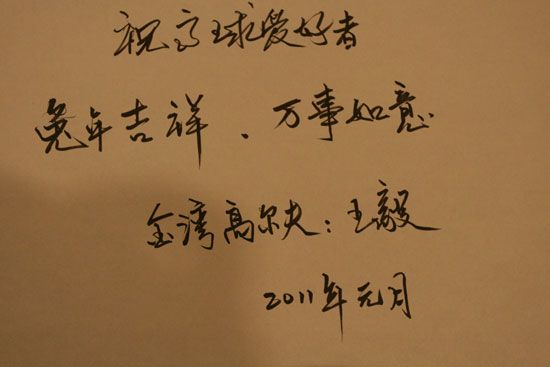 祝高球爱好者
兔年吉祥，万事如意
金湾高尔夫：王毅
2011年元月